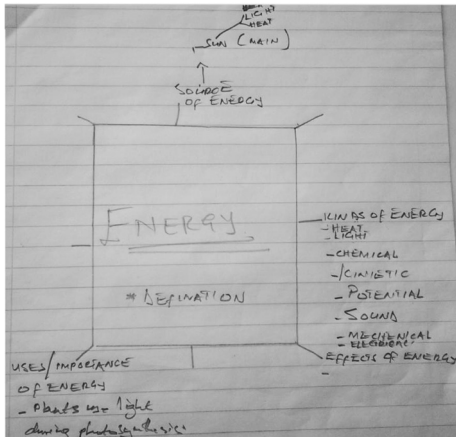 LIGHT
HEAT
- SUN (MAIN)
SOURCE
OF ENERGY
ENERGY
* DEFINATION
KINDS OF ENERGY
- HEAT
- LIGHT
- CHEMICAL
- KINETIC
- POTENTIAL
- SOUND
- MECHENICAL
- ELECTRICAL
EFFECTS OF ENERGY
-
USES/IMPORTANCE
OF ENERGY
- Plants use light
during photosynthesis.